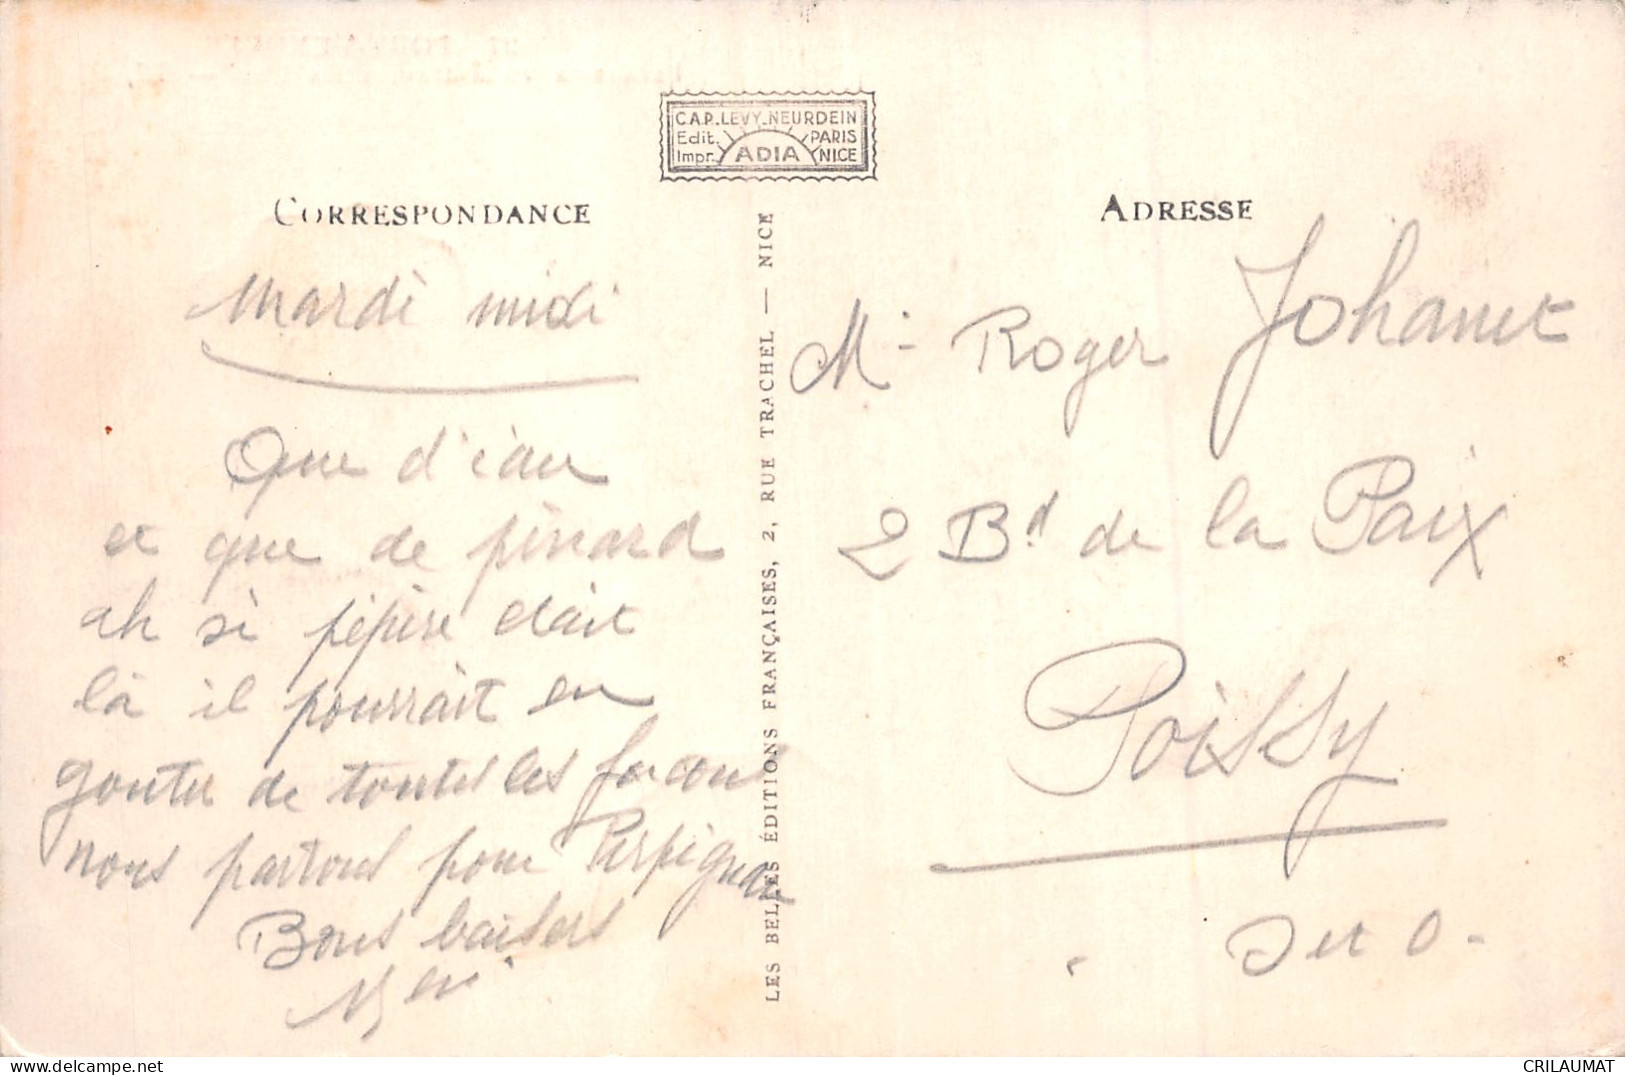 C.A.P. LEVY-NEURDEIN
Edit. PARIS
Impr. ADIA NICE
CORRESPONDANCE
Mardi midi
Que d'eau
et que de pinard
ah si pépère était
là il pourrait en
gouter de toutes les facons
nous partons pour Perpignan
Bons baisers
LES BELLES ÉDITIONS FRANÇAISES, 2, RUE TRACHEL — NICE
ADRESSE
Mr Roger Johanet
2 Bd de la Paix
Poissy
S et O.
CRILAUMAT